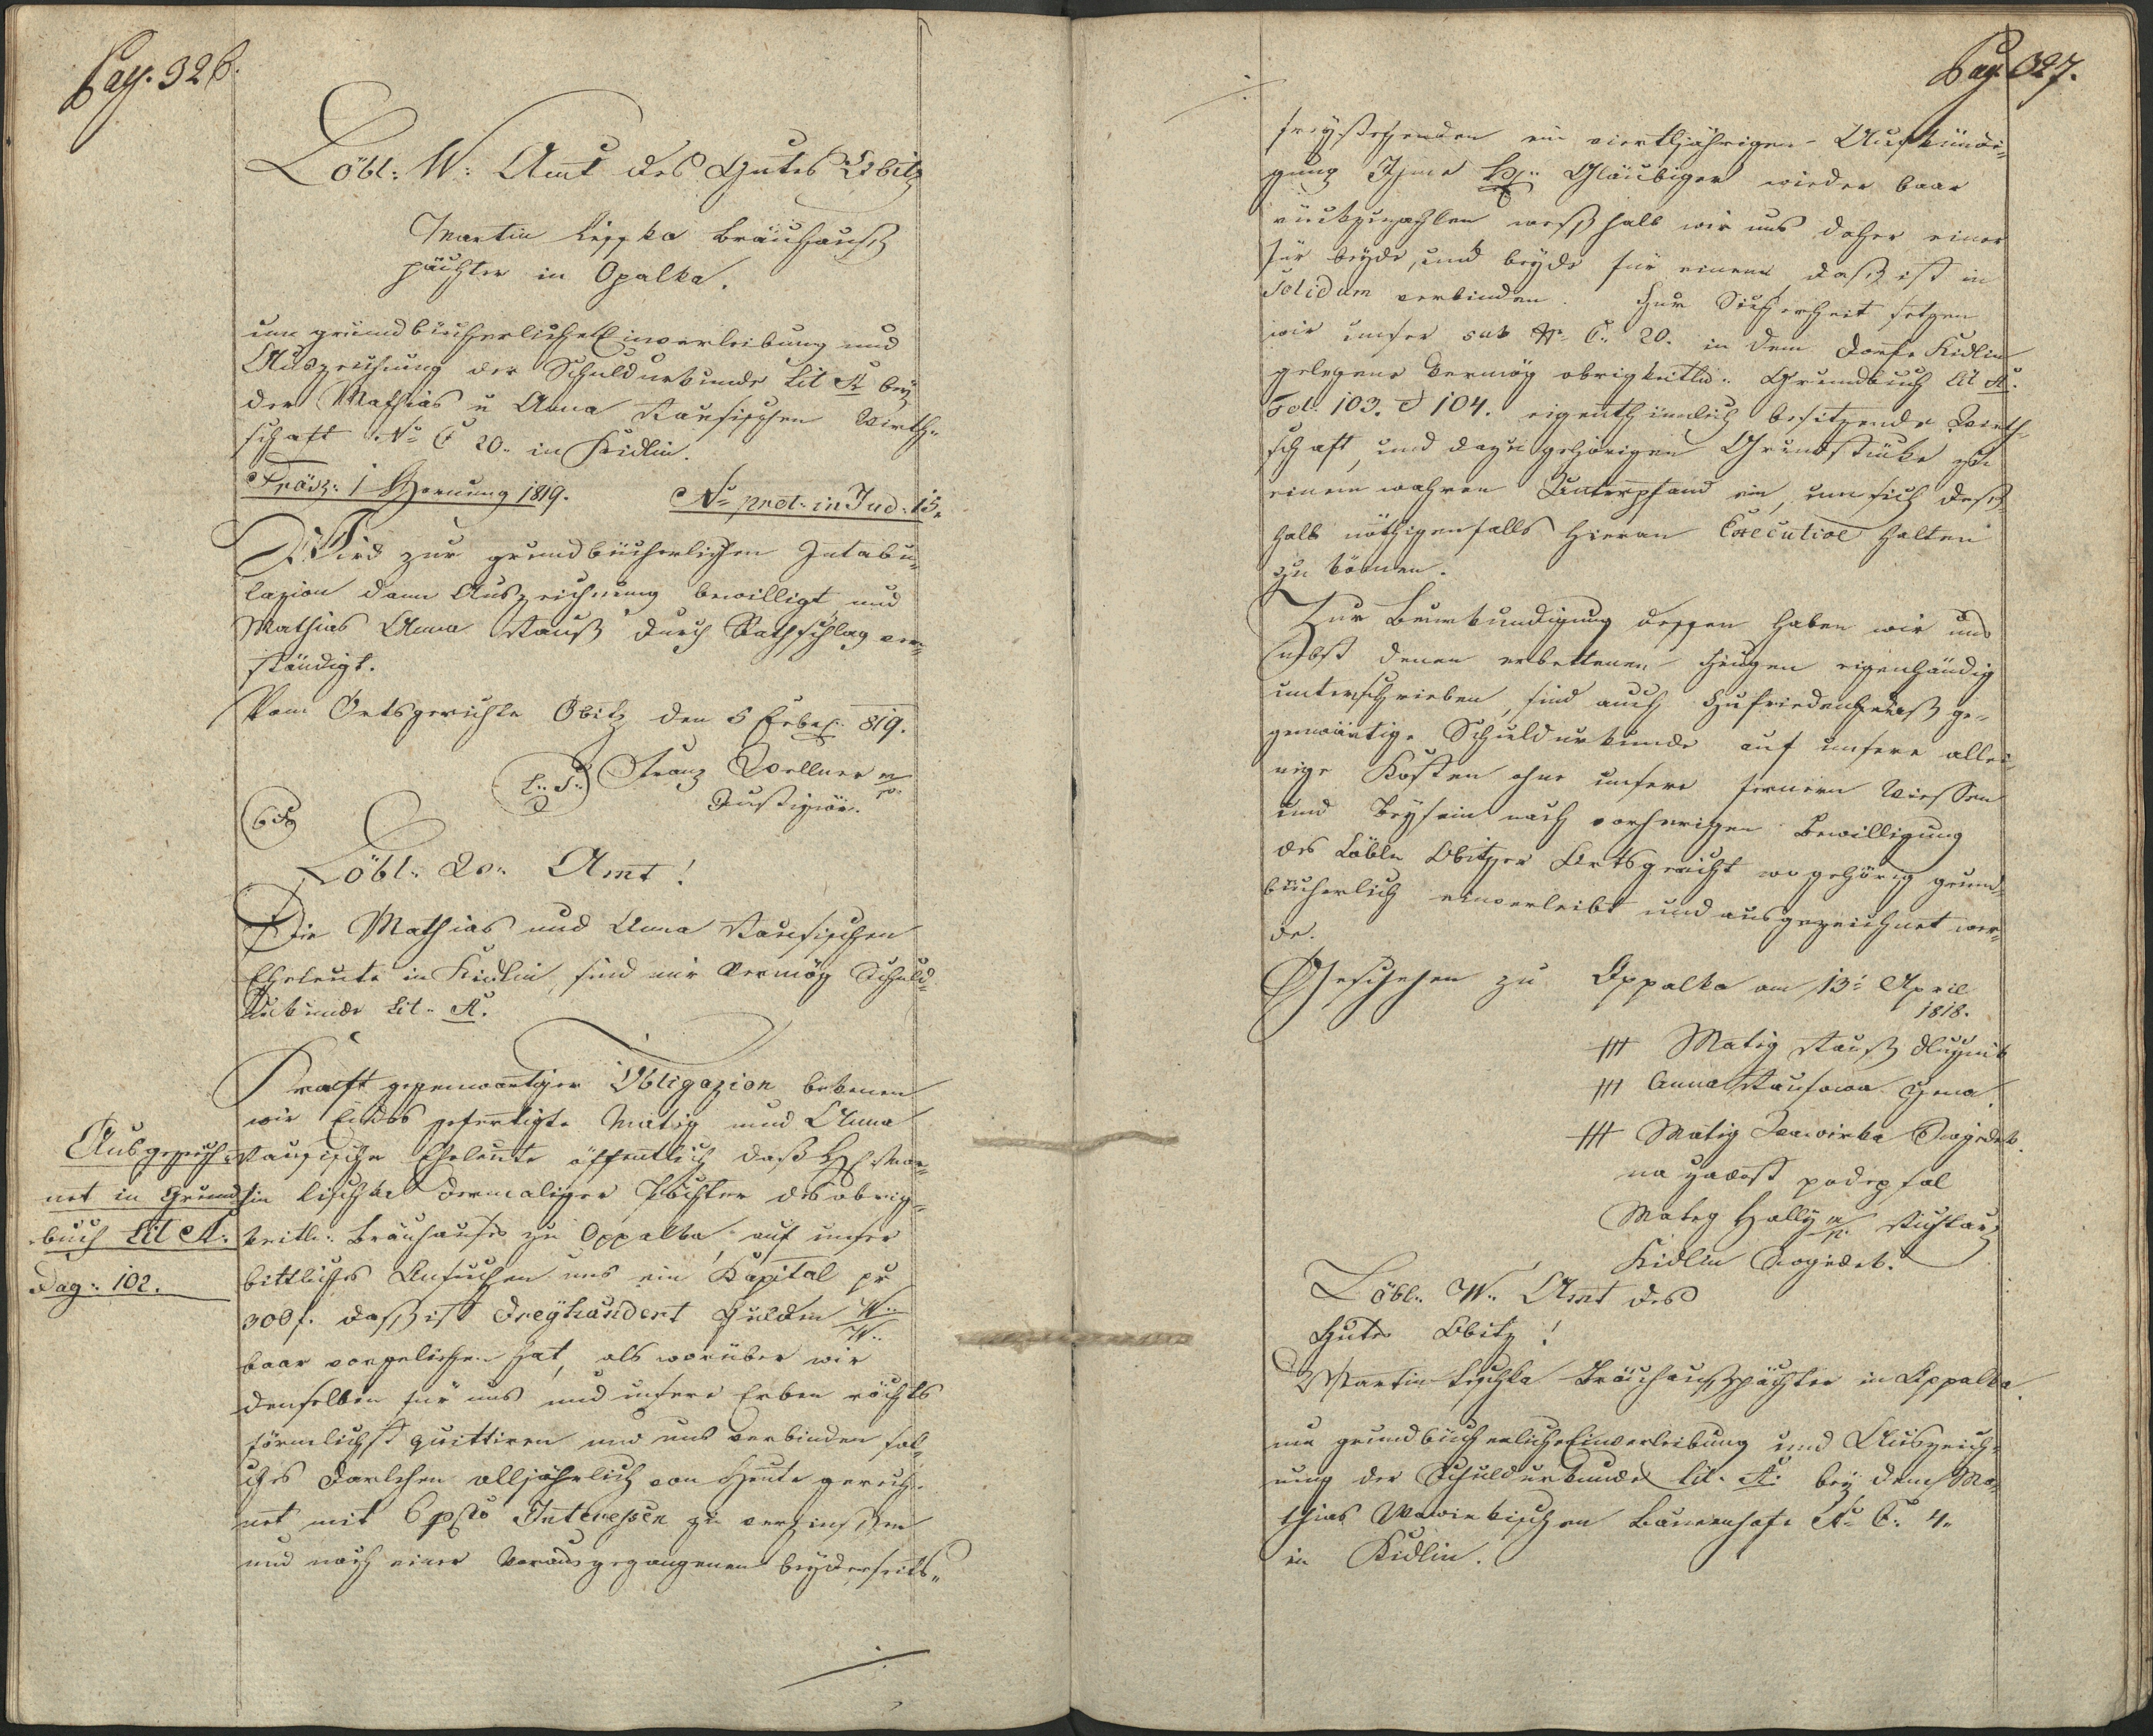 Pag. 326.
Löbl: W: Amt des Gutes Obitz
Martin Lischka Bräuhauß
pächter in Opalka.
um grundbücherliche Einverleibung und
Auszeichnung der Schuldurkunde Lit A bey
der Mathias u Anna Stausischen Wirth-
schaft No C 20. in Kidlin.
Präs: 1 Hornung 1819. No prot: in Jud: 13.
Wird zur grundbücherlichen Intabu-
lazion dann Auszeichnung bewilligt, und
Mathias Anna Stauß durch Rathschlag ver-
ständigt.
Vom Ortsgerichte Obitz den 5 Feber 819.
L: S: Franz Wellner m/p.
Justiziär.
Löbl: W: Amt!
Die Mathias und Anna Stausischen
Eheleute in Kidlin, sind mir Vermög Schuld-
Urkunde Lit. A.
Kraft gegenwärtiger Obligazion bekenen
wir Endes gefertigte Matig und Anna
Stausische Eheleute öffentlich daß H Mar-
tin Lischka dermaliger Pächter des obrig-
keitl: Bräuhauses zu Oppalka, auf unser
bittliches Ansuchen uns ein Kapital pr
300 f. daß ist Dreyhundert Gulden W: W:
baar vorgeliehen hat, als worüber wir
denselben für uns und unsere Erben rechts
förmlichst quittiren und uns verbinden sol-
ches Darlehen alljährlich von Heute gerech-
net mit 6 pcto Interessen zu verzinsen
und nach einer Vorausgegangenen beyderseits-
Ausgezeich-
net in Grund
buch Lit A:
Pag: 102.
Pag. 327.
freystehenden ein viertljährigen Aufkündi-
gung Ihme H: Gläubiger wieder baar
rückzuzahlen weßhalb wir uns daher einer
für beyde, und beyde für einen daß ist in
Solidum verbinden. Zur Sicherheit setzen
wir unser sub No C. 20. in dem Dorfe Kidlin
gelegene Vermög obrigkeitl: Grundbuch Lit A.
Fol. 103. & 104. eigenthümlich besitzende Wirth-
schaft, und dazu gehörigen Grundstücke zu
einem wahren Unterpfand ein, um sich deß-
halb nöthigenfalls hieran Executive halten
zu können.
Zur Beurkundigung dessen haben wir uns
nebst denen erbettenen Zeugen eigenhändig
unterschrieben, sind auch Zufrieden daß ge-
genwärtige Schuldurkunde auf unsere allei-
nige Kosten ohne unsere fernern Wiessen
und Beysein nach vorherigen Bewilligung
des Löbln Obitzer Ortsgericht wo gehörig grund-
bücherlich einverleibt und ausgezeichnet wer-
de.
Geschehen zu Oppalka am 13: April
1818.
+++ Matig Stauß Dluznik
+++ Anna Stausowa Zena.
+++ Matig Wawirka Swiedek.
na zadost podepsal
Mateg Hally m/p. Richtarz
Kidlin Swiedek.
Löbl: W: Amt des
Gutes Obitz!
Martin Lischka Bräuhaußpächter in Oppalka.
um grundbücherliche Einverleibung und Auszeich-
nung der Schuldurkunde Lit. A. bey dem Ma-
thias Wawirkischen Bauernhofe No C: 4.
in Kidlin.